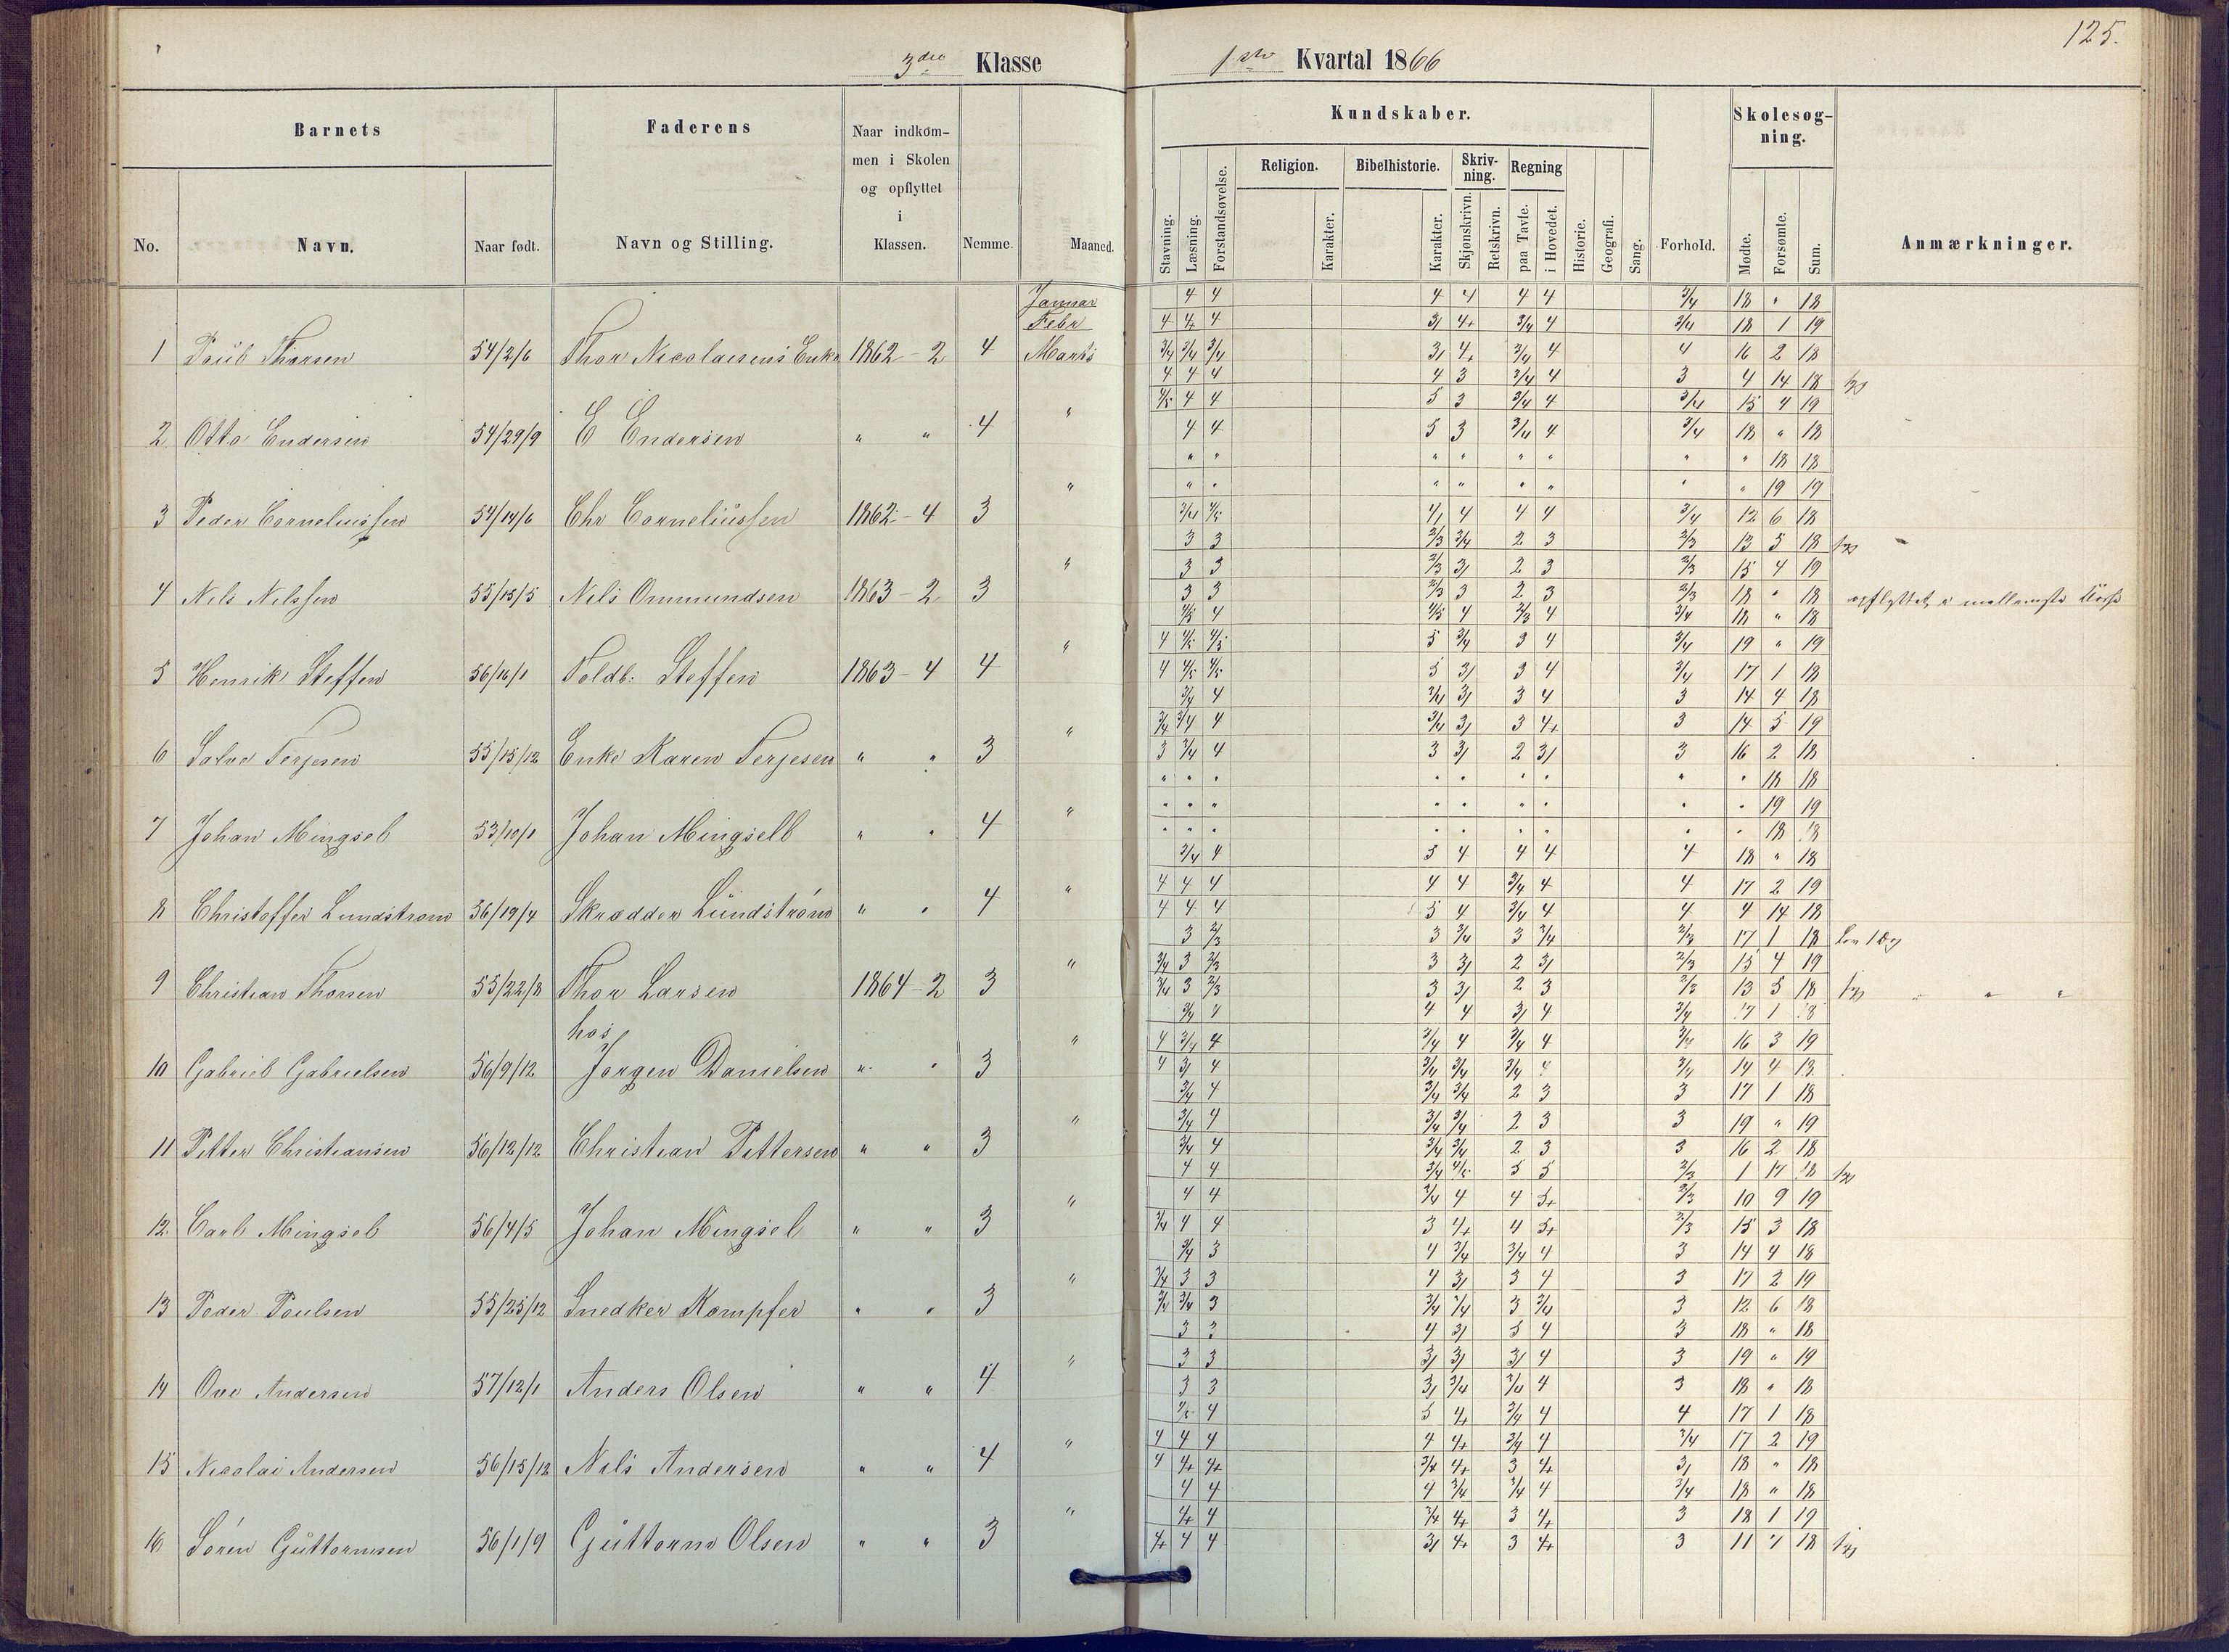 125.
3die Klasse
1ste Kvartal 1866
Barnets
Faderens
Naar indkom-
men i Skolen
og opflyttet
i
Klassen.
No.
Navn.
Naar født.
Navn og Stilling.
Nemme.
Maaned.
Kundskaber.
Skolesøg-
ning.
Religion.
Bibelhistorie.
Skriv-
ning.
Regning
Stavning.
Læsning.
Forstandsøvelse.
Karakter.
Karakter.
Skjønskrivn.
Retskrivn.
paa Tavle.
i Hovedet.
Historie.
Geografi.
Sang.
Forhold.
Mødte.
Forsømte.
Sum.
Anmærkninger.
Januar
Febr
1 Poul Thorsen 54/2/6 Thor Nicolaisens Enke 1862 - 2 4 Marts
2 Otto Endersen 54/29/9 E Endersen " " 4 "
3 Peder Corneliussen 54/14/6 Chr Corneliussen 1862 - 4 3 "
4 Nils Nilssen 55/15/5 Nils Ommundsen 1863 - 2 3 "
5 Henrik Steffen 56/16/1 Toldb: Steffen 1863 - 4 4 "
6 Salve Terjesen 55/15/12 Enke Karen Terjesen " " 3 "
7 Johan Mingsel 53/10/1 Johan Mingsell " " 4 "
8 Christoffer Lundstrøm 56/19/4 Skrædder Lundstrøm " " 4 "
9 Christian Thorsen 55/22/8 Thor Larsen 1864 - 2 3 "
hos
10 Gabriel Gabrielsen 56/9/12 Jørgen Danielsen " " 3 "
11 Petter Christiansen 56/12/12 Christian Pettersen " " 3 "
12. Carl Mingsel 56/4/5 Johan Mingsel " " 3 "
13 Peder Poulsen 55/25/12 Snedker Kampfer " " 3 "
14 Ove Andersen 57/12/1 Anders Olsen " " 4 "
15 Nicolai Andersen 56/15/12 Nils Andersen " " 4 "
16 Sören Guttormsen 56/1/9 Guttorm Olsen " " 3 "
4 4 4 4 4 4 3/4 18 " 18
4 4+ 4 3/ 4+ 3/4 4 3/4 18 1 19
3/4 3/4 3/4 3/ 4+ 3/4 4 4 16 2 18
4 4 4 4 3 3/4 4 3 4 14 18
4/5 4 4 5 3 3/4 4 3/4 15 4 19
4 4 5 3 3/4 4 3/4 18 " 18
" " " " " " " " 18 18
" " " " " " " " 19 19
3/4 4/5 4/ 4 4 4 3/4 12 6 18
3 3 2/3 3/4 2 3 2/3 13 5 18
3 3 2/3 3/ 2 3 2/3 15 4 19
3 3 2/3 3 2 3 2/3 18 " 18 opflyttet i mellemste Classe
4/5 4 4/5 4 2/3 4 3/4 18 " 18
4 4/5 4/5 5 3/4 3 4 3/4 19 " 19
4 4/5 4/5 5 3/ 3 4 3/4 17 1 18
3/4 4 3/4 3/ 3 4 3 14 4 18
3/4 3/4 4 3/4 3/ 3 4+ 3 14 5 19
3 3/4 4 3 3/ 2 3/ 3 16 2 18
" " " " " " " " " 18 18
" " " " " " " " " 19 19
" " " " " " " " " 18 18
3/4 4 5 4 4 4 4 18 " 18
4 4 4 4 4 3/4 4 4 17 2 19
4 4 4 5 4 3/4 4 4 4 14 18
3 2/3 3 3/4 3 3/4 2/3 17 1 18
3/4 3 2/3 3 3/ 2 3/ 2/3 15 4 19
3/4 3 2/3 3 3/ 2 3 2/3 13 5 18
3/4 4 4 4 3/ 4 3/4 17 1 18
4 3/4 4 3/4 4 3/4 4 3/4 16 3 19
4 3/ 4 3/4 3/4 3/4 4 3/4 14 4 18
3/4 4 3/4 3/4 2 3 3 17 1 18
3/4 4 3/4 3/4 2 3 3 19 " 19
3/4 4 3/4 3/4 2 3 3 16 2 18
4 4 3/4 4/5 5 5 2/3 1 17 18
4 4 3/4 4 4 5+ 2/3 10 9 19
3/4 4 4 3 4+ 4 5+ 2/3 15 3 18
3/4 3 4 3/4 3/4 4 3 14 4 18
3/4 3 3 4 3/ 3 4 3 17 2 19
3/4 3/4 3 3/4 3/4 3 3/4 3 12 6 18
3 3 4 3/ 5 4 3 18 " 18
3 3 3/ 3/ 3/ 4 3 19 " 19
3 3 3/ 3/4 3/4 4 3 18 " 18
4/5 4 5 4+ 3/4 4 4 17 1 18
4 4 4 4 4+ 3/4 4 3/4 17 2 19
4 4+ 4+ 3/4 4+ 3 4+ 3/ 18 " 18
4 4 4 3/4 3/4 4 3/4 18 " 18
4+ 4 3/4 4+ 3 4+ 3 18 1 19
4+ 4 4 3/ 4+ 3 4+ 3 11 7 18